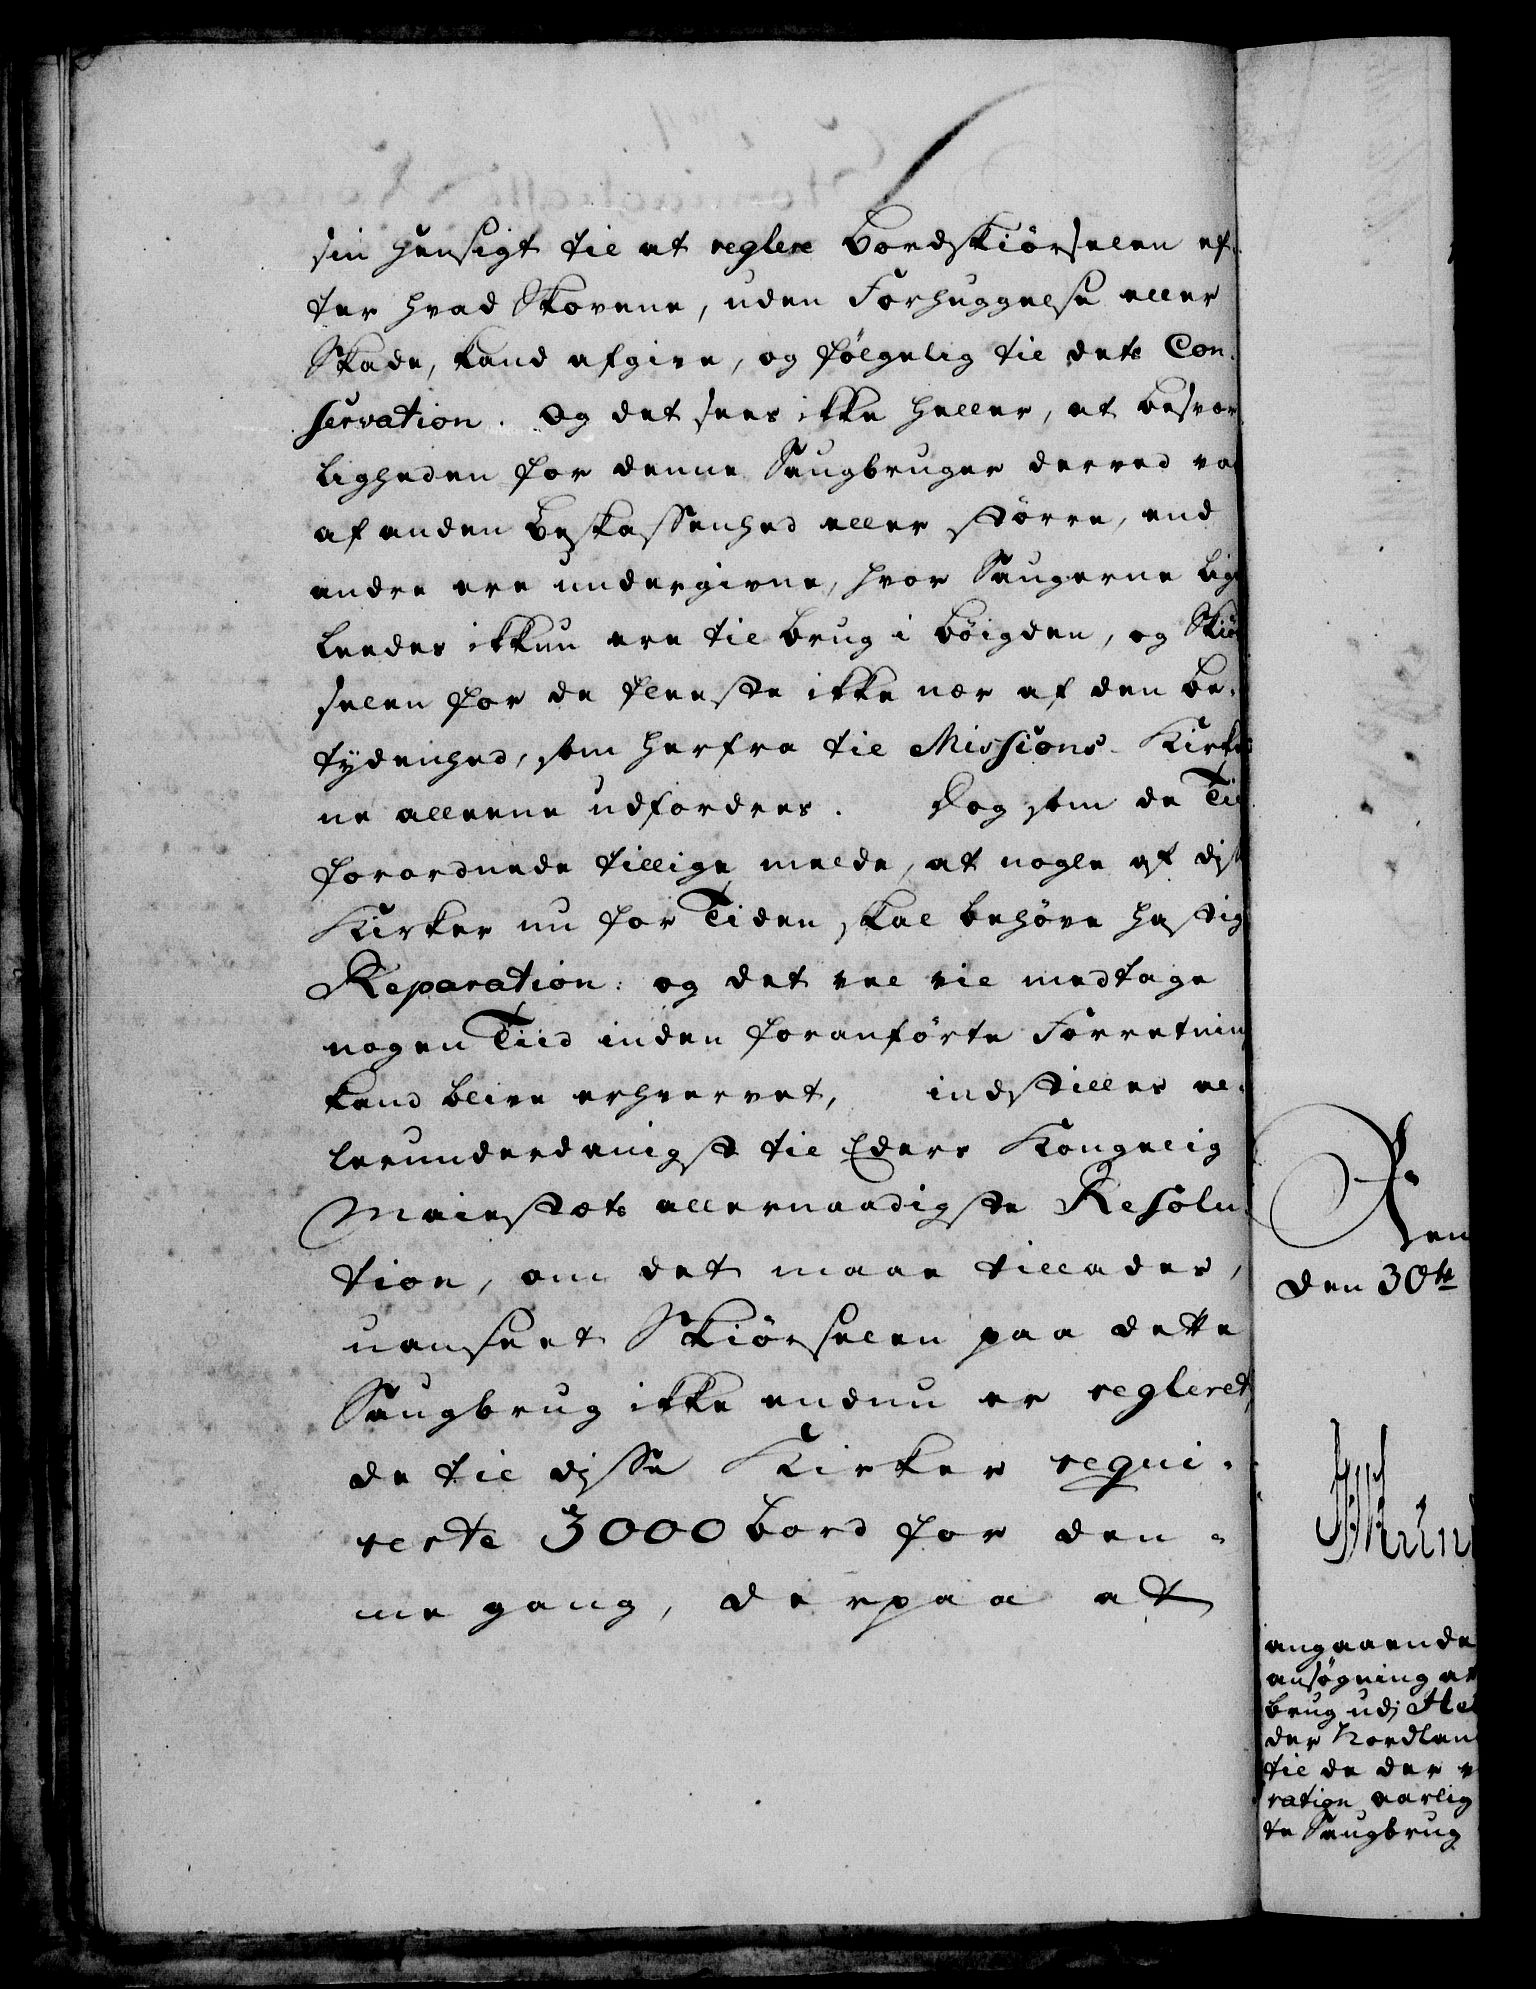 sin Hensigt til at reglere Bordskiörselen ef-
ter hvad Skovene, uden Forhuggelse eller
Skade, kand afgive, og fölgelig til dets Con-
servation. Og det sees ikke heller, at besvær
ligheden for denne Saugbruger derved va
af anden Beskaffenhed eller större, end
andre ere undergivne, hvor Saugerne lige
leedes ikkun ere til brug i böigden, og Skiör
selen for de fleeste ikke nær af den be-
tydenhed, som herfra til Missions-Kirker
ne alleene udfordres. Dog som de Til
forordnede tillige melde, at nogle af diss
Kirker nu for Tiden skal behöve hastig
Reparation: og det vel vil medtage
nogen Tiid inden foranförte Forretning
kand blive erhvervet, indstilles al-
lerunderdanigst til Eders Kongelig
Maiestæts allernaadigste Resolu-
tion, om det maae tillades,
uanseet Skiörselen paa dette
Saugbrug ikke endnu er regleret,
de til disse Kirker requi-
rerte 3000 bord for den-
ne gang, derpaa at
den 30te
angaaende
ansögning at
brug udj He
der Nordlan
til de der v
ration aarlig
te Saugbrug